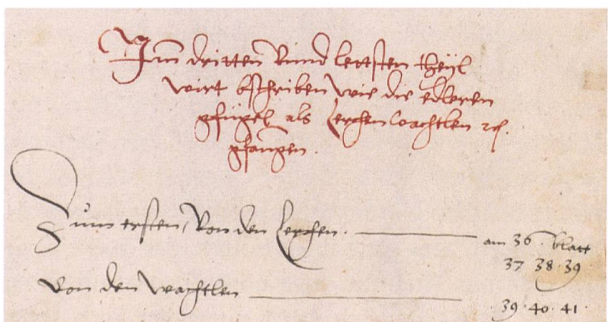 Im dritten Vnnd letsten theÿl
wirt bschriben wie die edleren
gfügel als Lerchen wachtlen ꝛc.
gfangen.
Zum ersten, Von den Lerchen. am 36 · blatt
37 38 · 39
Von den wachtlen · 39 · 40 · 41 ·